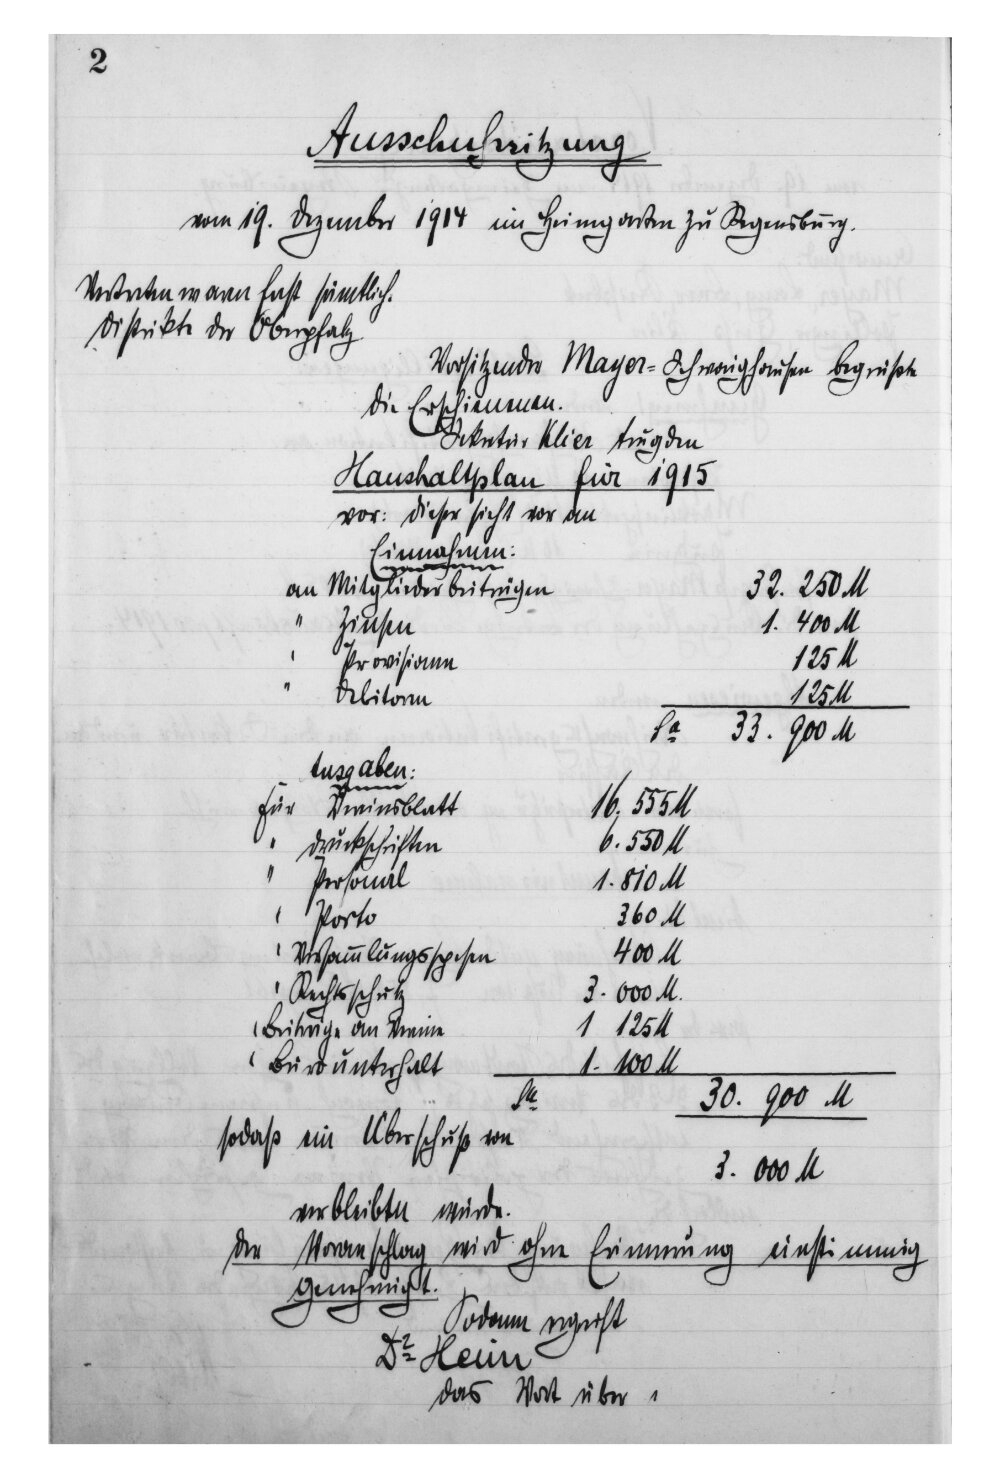 2
Ausschußsitzung
vom 19. Dezember 1914 im Heimgarten zu Regensburg.
Vertreten waren fast sämtlich.
Distrikte der Oberpfalz
Vorsitzender Mayer- Schwaighausen begrüßte
die Erschienenen.
Sekretär Klier trug den
Haushaltplan für 1915
vor: dieser sieht vor an
Einnahmen:
an Mitgliederbeiträgen 32. 250 M
" Zinsen 1. 400 M
" Provisionen 125 M
" Debitoren 125 M
Sa 33. 900 M
Ausgaben:
für Vereinsblatt 16. 555 M
" Druckschriften 6. 550 M
" Personal 1. 810 M
" Porto 360 M
" Versammlungsspesen 400 M
" Rechtsschutz 3. 000 M.
" Beiträge an Vereine 1 125 M
" Bürounterhalt 1. 100 M
Sa 30. 900 M
sodaß ein Überschuß von
3. 000 M
verbleiben würde.
Der Voranschlag wird ohne Erinnerung einstimmig
genehmigt.
Sodann ergreift
Dr Heim
das Wort über